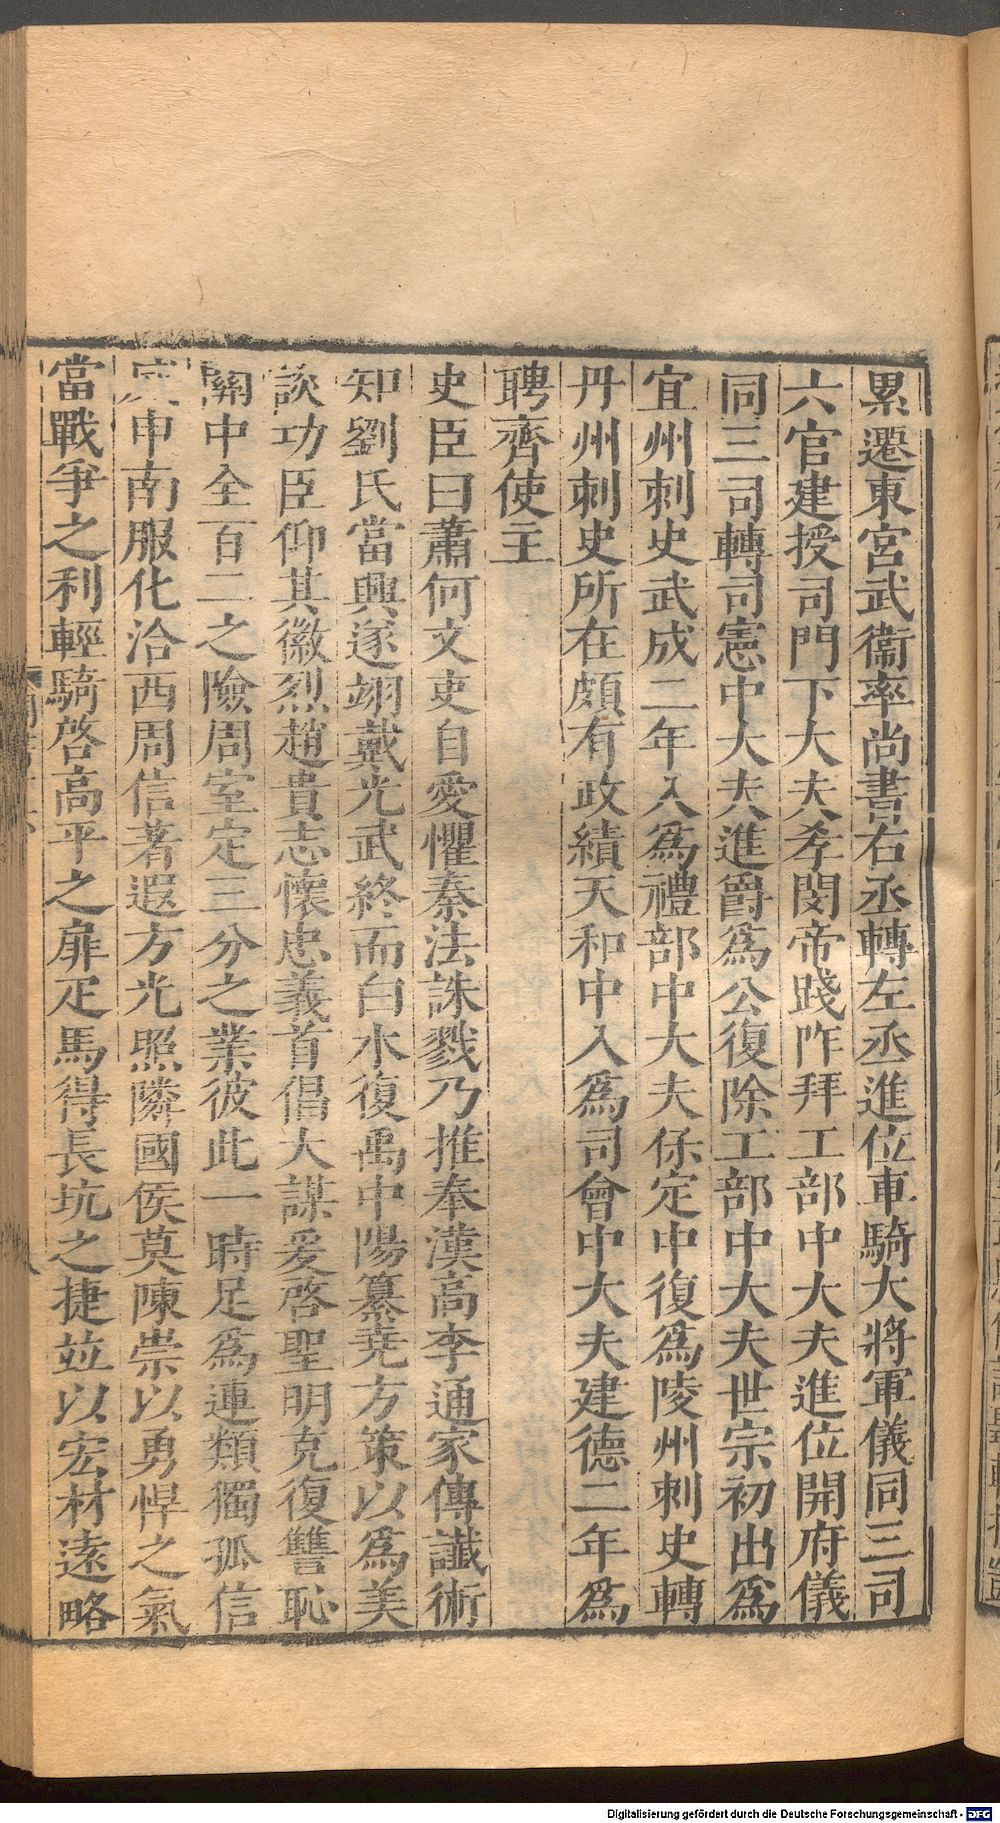 累遷東宮武衞率尚書右丞轉左丞進位車騎大將軍儀同三司
六官建授司門下大夫孝閔帝踐阼拜工部中大夫進位開府儀
同三司轉司憲中大夫進爵爲公復除工部中大夫世宗初出爲
宜州刺史武成二年入爲禮部中大夫保定中復爲陵州刺史轉
丹州刺史所在頗有政績天和中入爲司會中大夫建德二年爲
聘齊使主
史臣曰蕭何文吏自愛懼秦法誅戮乃推奉漢高李通家傳讖術
知劉氏當興遂翊戴光武終而白水復禹中陽纂堯方策以爲美
談功臣仰其徽烈趙貴志懷忠義首倡大謀爰啓聖明克復讐恥
關中全百二之險周室定三分之業彼此一時足爲連類獨孤信
申南服化洽西周信著遐方光照隣國侯莫陳崇以勇悍之氣
當戰爭之利輕騎啓高平之扉疋馬得長坑之捷並以宏材遠略
Digitalisierung gefördert durch die Deutsche Forschungsgemeinschaft - DFG